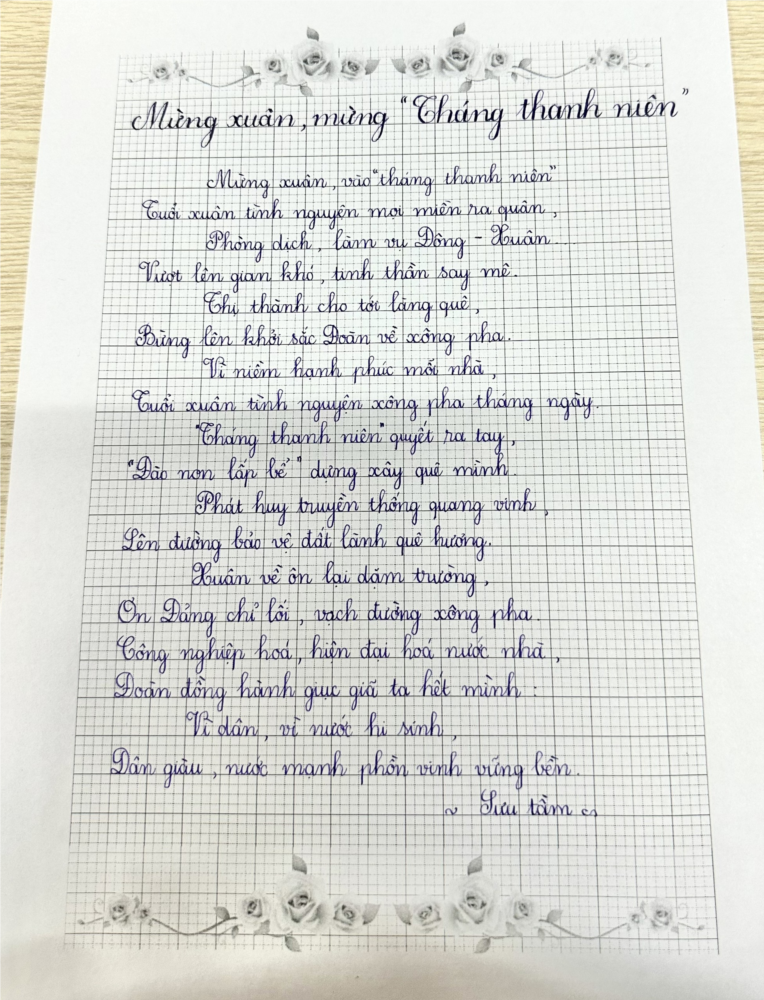 Mừng xuân, mừng "Tháng thanh niên"
Mừng xuân, vào "tháng thanh niên"
Tuổi xuân tình nguyện mọi miền ra quân,
Phòng dịch, làm vụ Đông - Xuân
Vượt lên gian khó, tinh thần say mê.
Thị thành cho tới làng quê,
Bừng lên khởi sắc Đoàn về xông pha.
Vì niềm hạnh phúc mỗi nhà,
Tuổi xuân tình nguyện xông pha tháng ngày.
"Tháng thanh niên" quyết ra tay,
"Đào non lấp bể" dựng xây quê mình.
Phát huy truyền thống quang vinh,
Lên đường bảo vệ đất lành quê hương.
Xuân về ôn lại dặm trường,
Ơn Đảng chỉ lối, vạch đường xông pha.
Công nghiệp hoá, hiện đại hoá nước nhà,
Đoàn đồng hành giục giã ta hết mình:
Vì dân, vì nước hi sinh,
Dân giàu, nước mạnh phồn vinh vững bền.
~ Sưu tầm ~